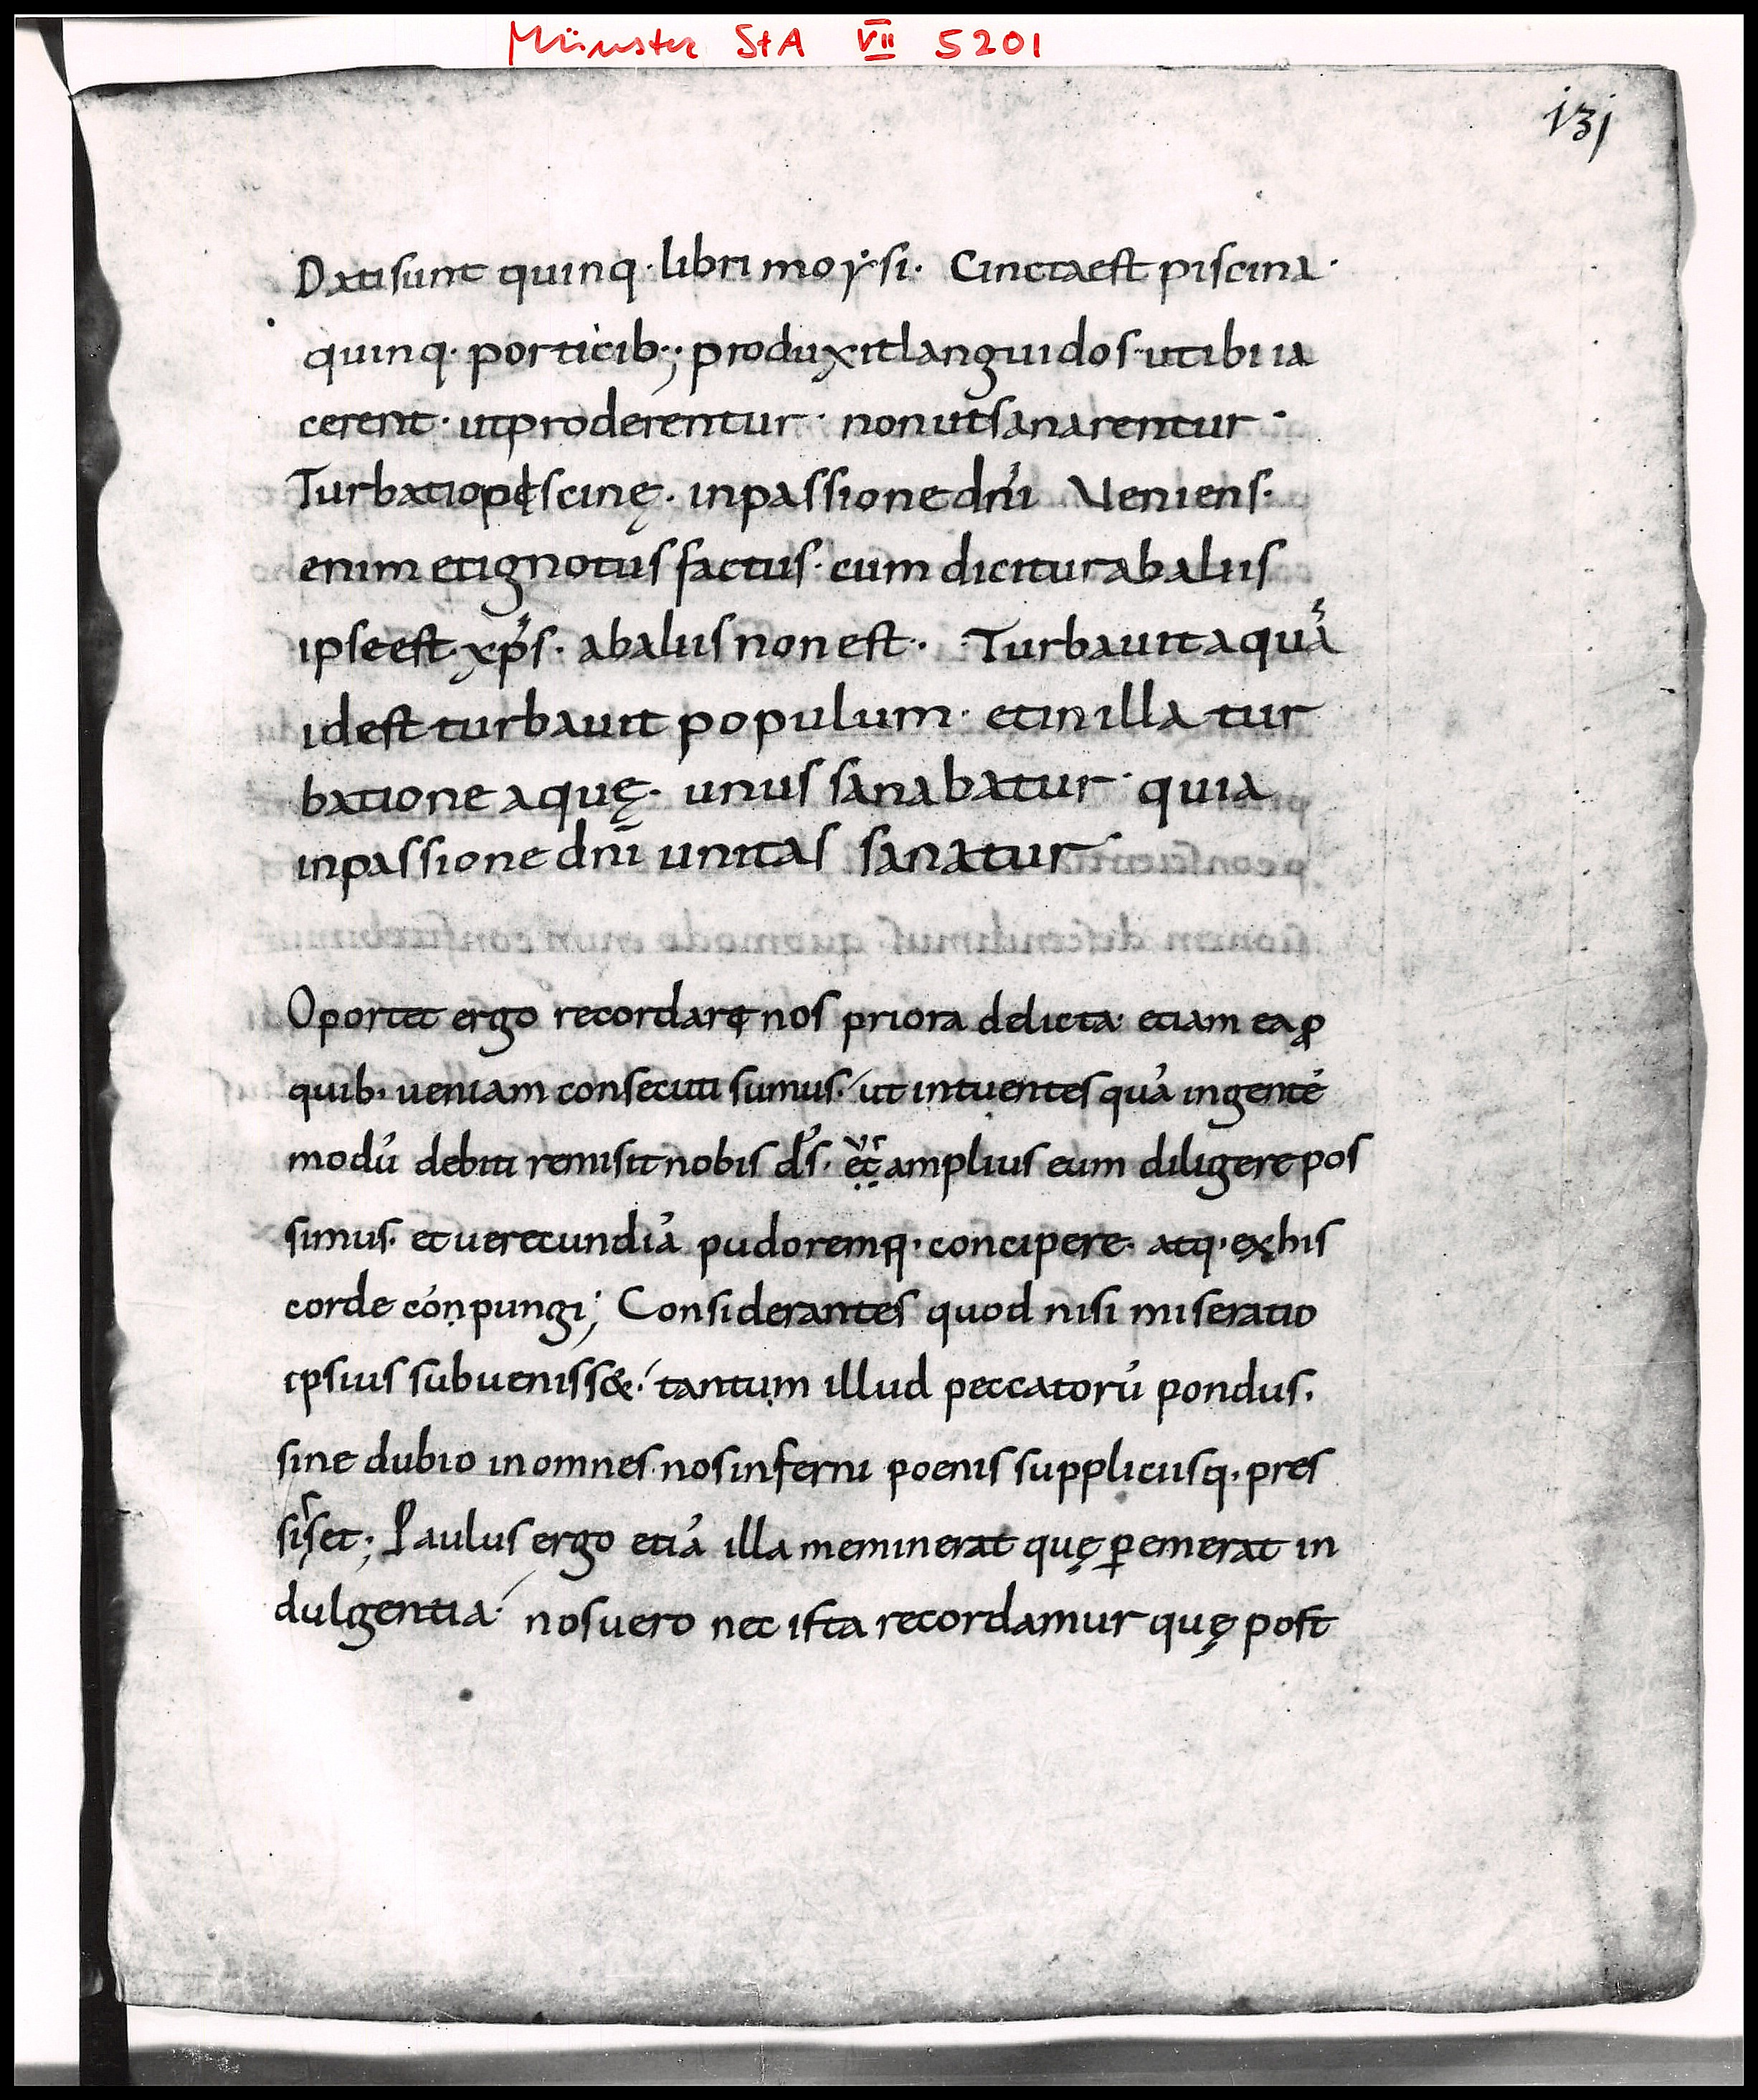 Münster StA VII 5201
131
Dati sunt quinq· libri moẏsi· Cincta est piscina·
quinq· porticib·; produxit languidos· ut ibi ia
cerent· ut proderentur· non ut sanarentur·
Turbatio piscinę· in passione dn̄i Veniens·
enim et ignotus factus· cum dicitur ab aliis
ipse est xp̄s· ab aliis non est· Turbauit aquā
id est turbauit populum· et in illa tur
batione aquę· unus sanabatur· quia
in passione dn̄i unitas sanatur
Oportet ergo recordari nos priora delicta· etiam ea ꝓ
quib· ueniam consecuti sumus· ut intuentes quā ingentē
modū debiti remisit nobis d̄s· et amplius eum diligere pos
simus· et uerecundiā pudoremq· concipere· atq· ex his
corde conpungi; Considerantes quod nisi miseratio
ipsius subueniss&· tantum illud peccatorū pondus·
sine dubio in omnes nos inferni poenis suppliciisq· pres
sisset; Paulus ergo etiā illa meminerat quę ꝑemerat in
dulgentia· nos uero nec ista recordamur quę post